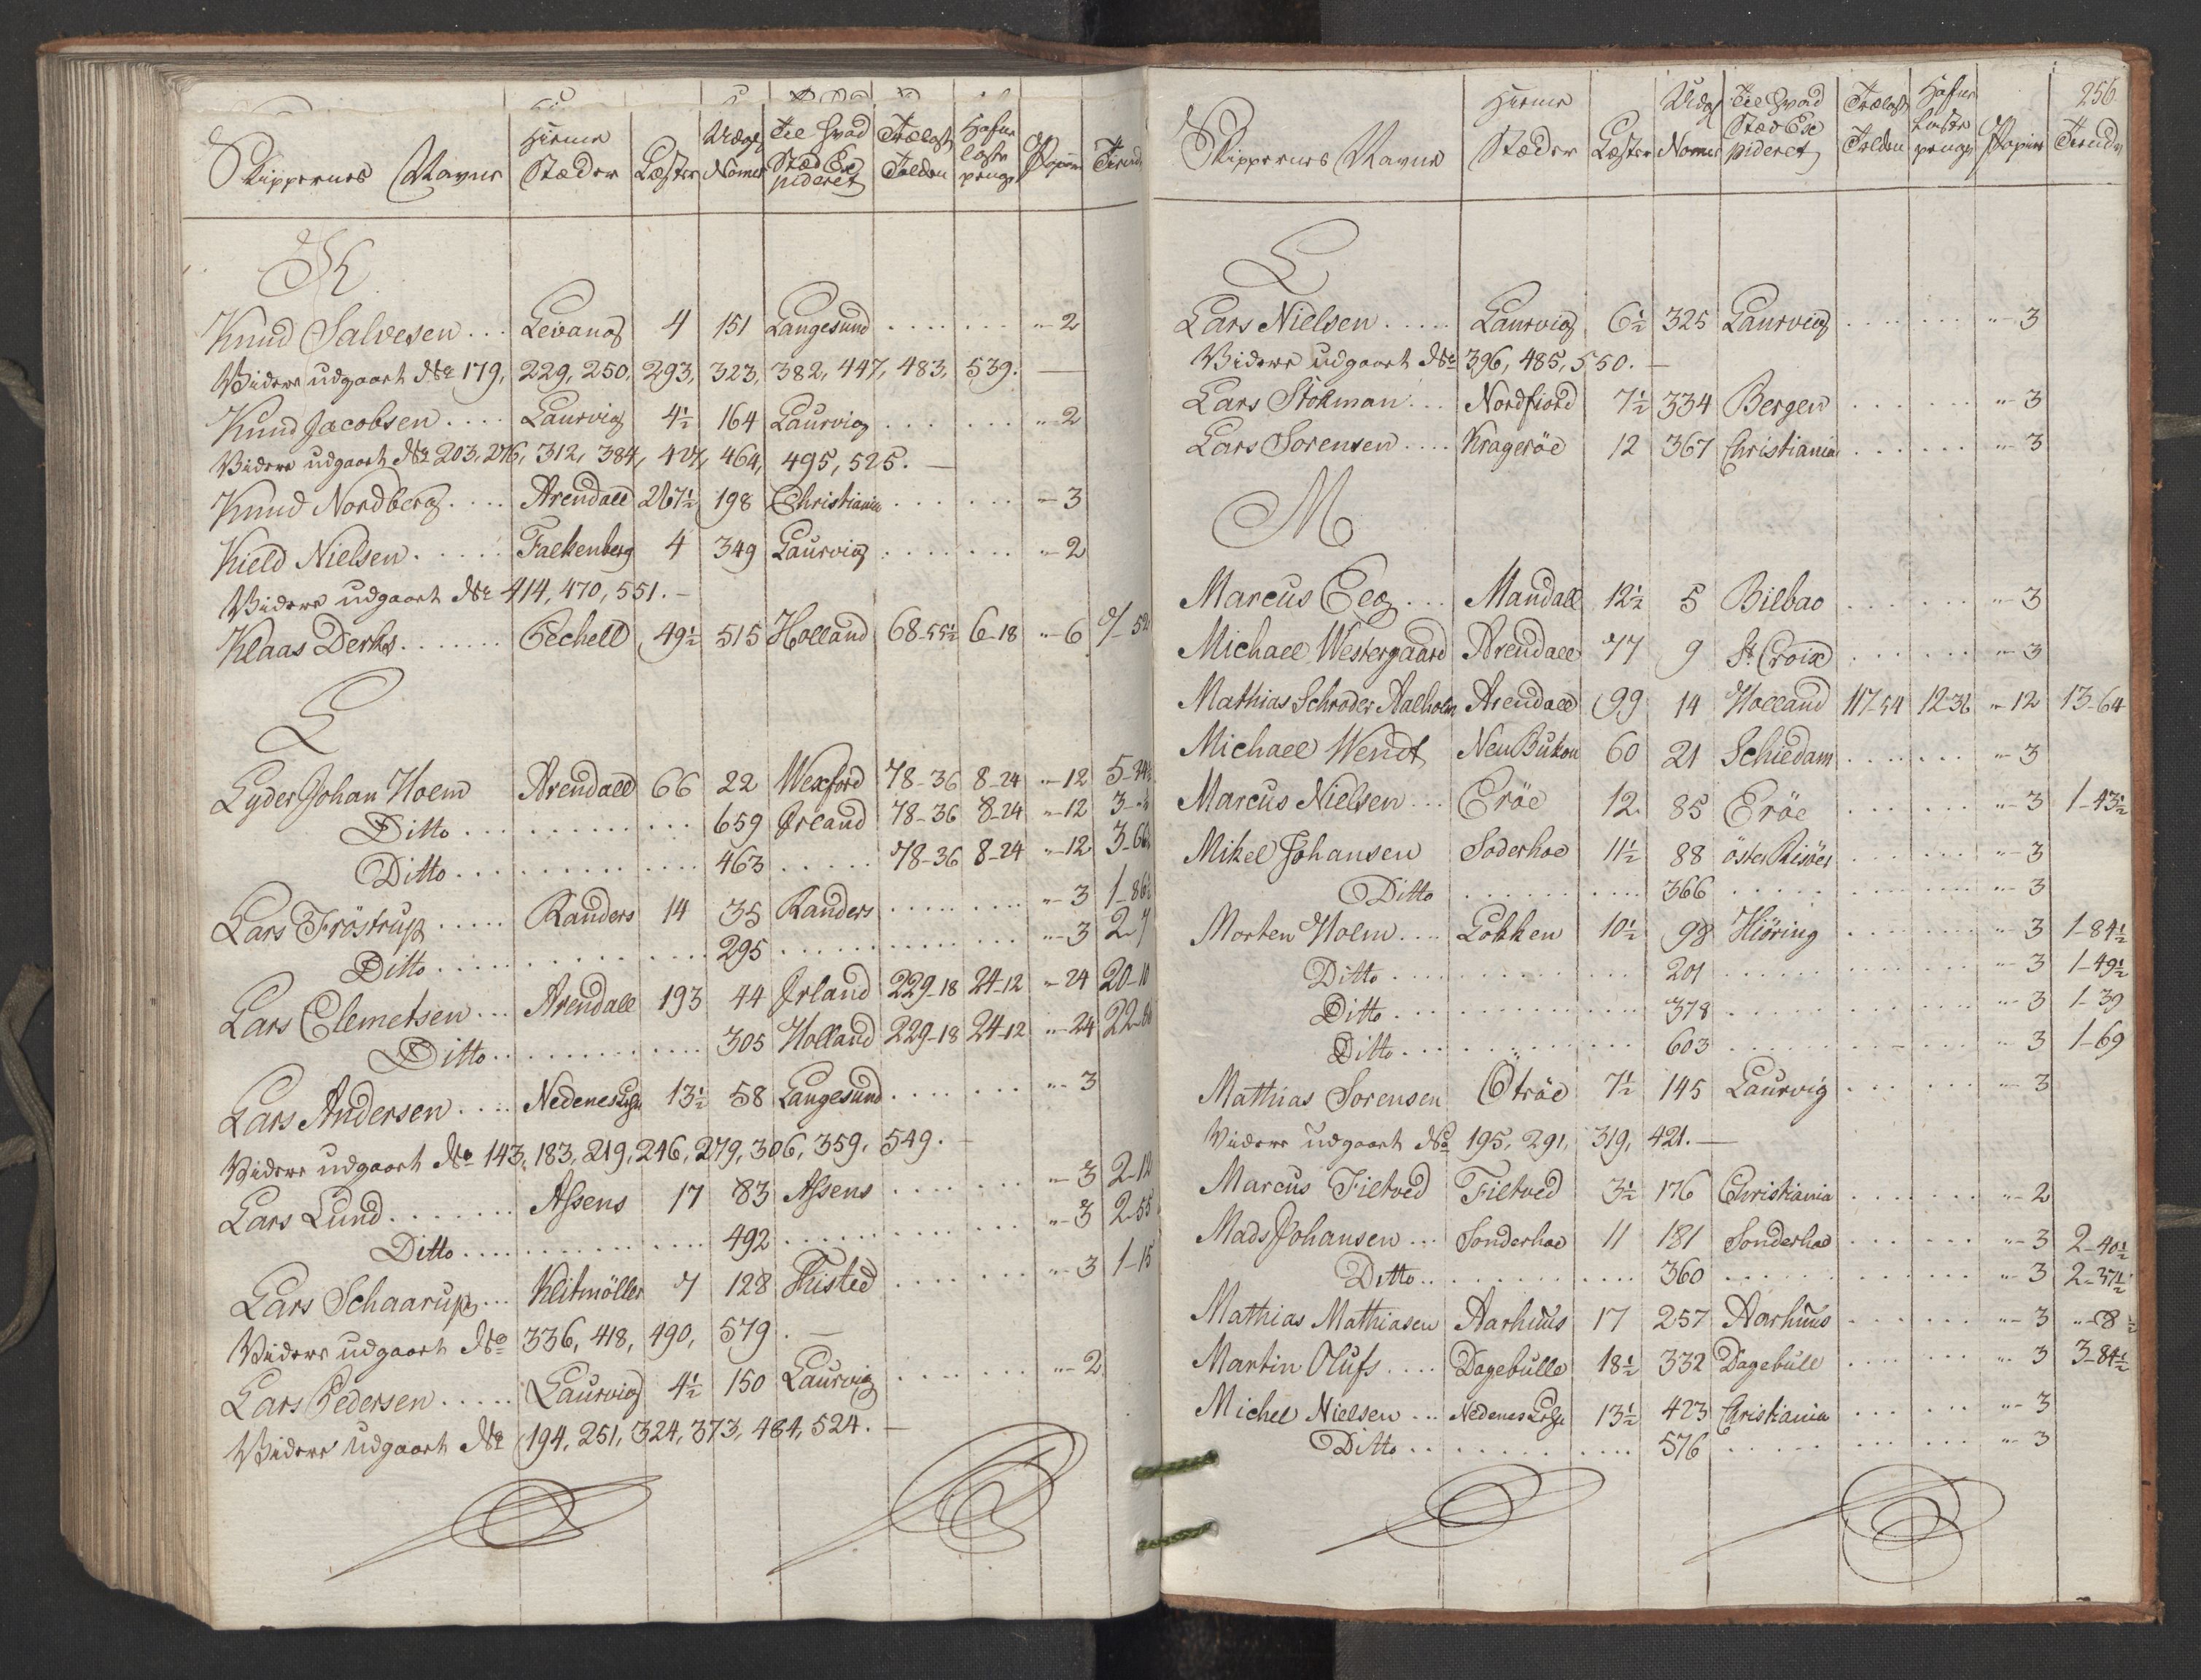 Skippernes Navne Hiemme Stæder Læster Udg. Nomer Til Hvad Stæd Expideret Trælast Tolden Hafne laste penge Papiir
K
Knud Salvesen ... Levang 4 151 Langesund ...... "-2
Videre udgaaet No 179, 229, 250, 293, 323, 382, 447, 483, 539. —
Knud Jacobsen .... Laurvig 4½ 164 Laurvig ...... "-2
Videre udgaaet No 203, 276, 312, 384, 427, 464, 495, 525. —
Knud Nordberg .... Arendall 267½ 198 Christiania ...... "-3
Kield Nielsen ..... Falkenberg 4 349 Laurvig ...... "-2
Videre udgaaet No 414, 470, 551. -
Klaas Derks ...... Pechell 49½ 515 Holland 68-55½ 6-18 "-6
L
Lyder Johan Holm Arendall 66 22 Wexford 78-36 8-24 "-12
Ditto ........... 659 Jrland 78-36 8-24 "-12
Ditto ........... 463 ..... 78-36 8-24 "-12
Lars Fröstrup ..... Randers 14 35 Randers ...... "-3
Ditto ........... 295 ........... "-3
Lars Clemetsen ... Arendall 193 44 Jrland 229-18 24-12 "-24 20-10
Ditto ........... 305 Holland 229-18 24-12 "-24
Lars Andersen .... Nedenes 13½ 58 Langesund ...... "-3
Videre udgaaet No 143, 183, 219, 246, 279, 306, 359, 549. -
Lars Lund ....... Assens 17 83 Assens ...... "-3 2-12
Ditto ........... 492 ........... "-3 2-55
Lars Schaarup ... Klitmöller 7 128 Thisted ...... "-3 1-15
Videre udgaaet No 336, 418, 490, 579. —
Lars Pedersen ..... Laurvig 4½ 150 Laurvig ...... "-2
Videre udgaaet No 194, 251, 324, 373, 484, 524. —
256.
Skippernes Navne Hiemme Stæder Læster Udg. Nomer Til Hvad Stæd Expideret Trælast Tolden Hafne laste penge Papiir
L
Lars Nielsen ..... Laurvig 6½ 325 Laurvig ...... "-3
Videre udgaaet No 396, 485, 550. —
Lars Stokman ... Nordfiord 7½ 334 Bergen ...... "-3
Lars Sorensen .... Krageröe 12 367 Christiania ...... "-3
M
Marcus Eeg ... Mandall 12½ 5 Bilbao ...... "-3
Michael Westergaard Arendall 77 9 St Croix ...... "-3
Mathias Schroder Aalholm Arendall 99 14 Holland 117-54 12-36 "-12 13-64
Michael Wendt Neu Bukou 60 21 Schiedam ...... "-3
Marcus Nielsen ... Eröe 12 85 Eröe ...... "-3 1-43½
Mikel Johansen Soderhoe 11½ 88 öster Risöer ...... "-3
Ditto ........ 366 ........ "-3
Morten Holm .... Lökken 10½ 98 Hiöring ...... "-3 1-84½
Ditto ........ 201 ........ "-3 1-49½
Ditto ........ 378 ........ "-3 1-39
Ditto ........ 603 ........ "-3 1-69
Mathias Sorensen Otröe 7½ 145 Laurvig ...... "-3
Videre udgaaet No 195, 291, 319, 421. —
Marcus Fieltved Fieltved 3½ 176 Christiania ...... "-2
Mads Johansen ... Sonderhoe 11 181 Sonderhoe ...... "-3 2-40½
Ditto ........ 360 ........ "-3 2-37½
Mathias Mathiasen Aarhuus 17 257 Aarhuus ...... "-3 "-8½
Martin Olufs .... Dagebülle 18½ 332 Dagebüll ...... "-3 3-84½
Michel Nielsen ... Nedenes 13½ 423 Christiania ...... "-3
Ditto ........ 576 ........ "-3